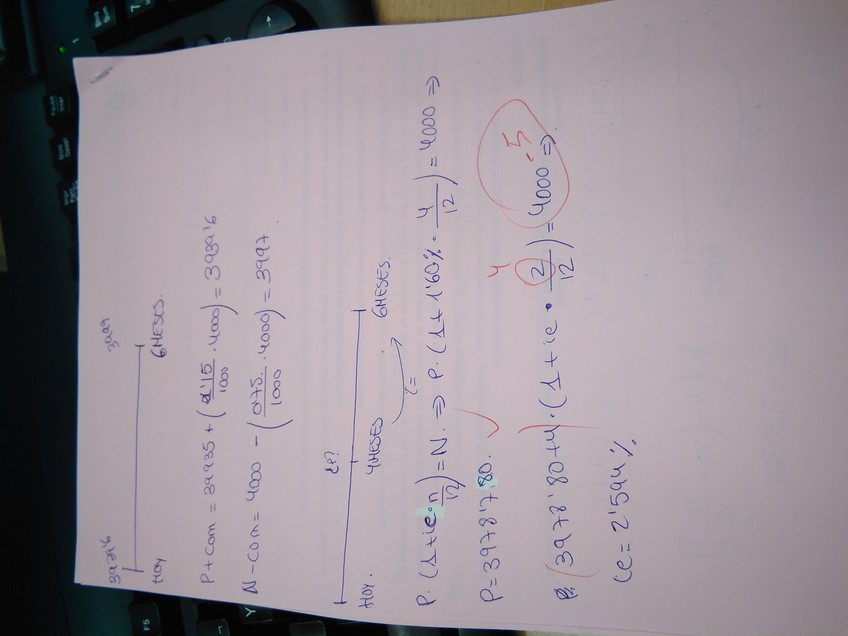 3939'6 3997
HOY 6 MESES.
P + COM = 3993'5 + (0'75/1000 · 4000) = 3939'6
N - COM = 4000 - (0'75/1000 · 4000) = 3997.
¿P?
HOY. 4 MESES 6 MESES.
i=
P. (1+ie·n/12) = N. ⇒ P. (1+1'60%. 4/12) = 4000 ⇒
P = 3978'7.80.
4
·5
(3978'80+4)·(1+ie · 2/12) = 4000 ⇒.
ie = 2'594%
F5